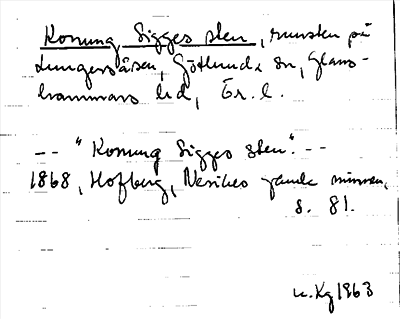 Konung Sigges sten, runsten på
Lungersåsen, Götlunda sn, Glans-
hammars hd, Ör. l.
-- "Konung Sigges sten". --
1868, Hofberg, Nerikes gamla minnen,
s. 81.
u. Kg 1963